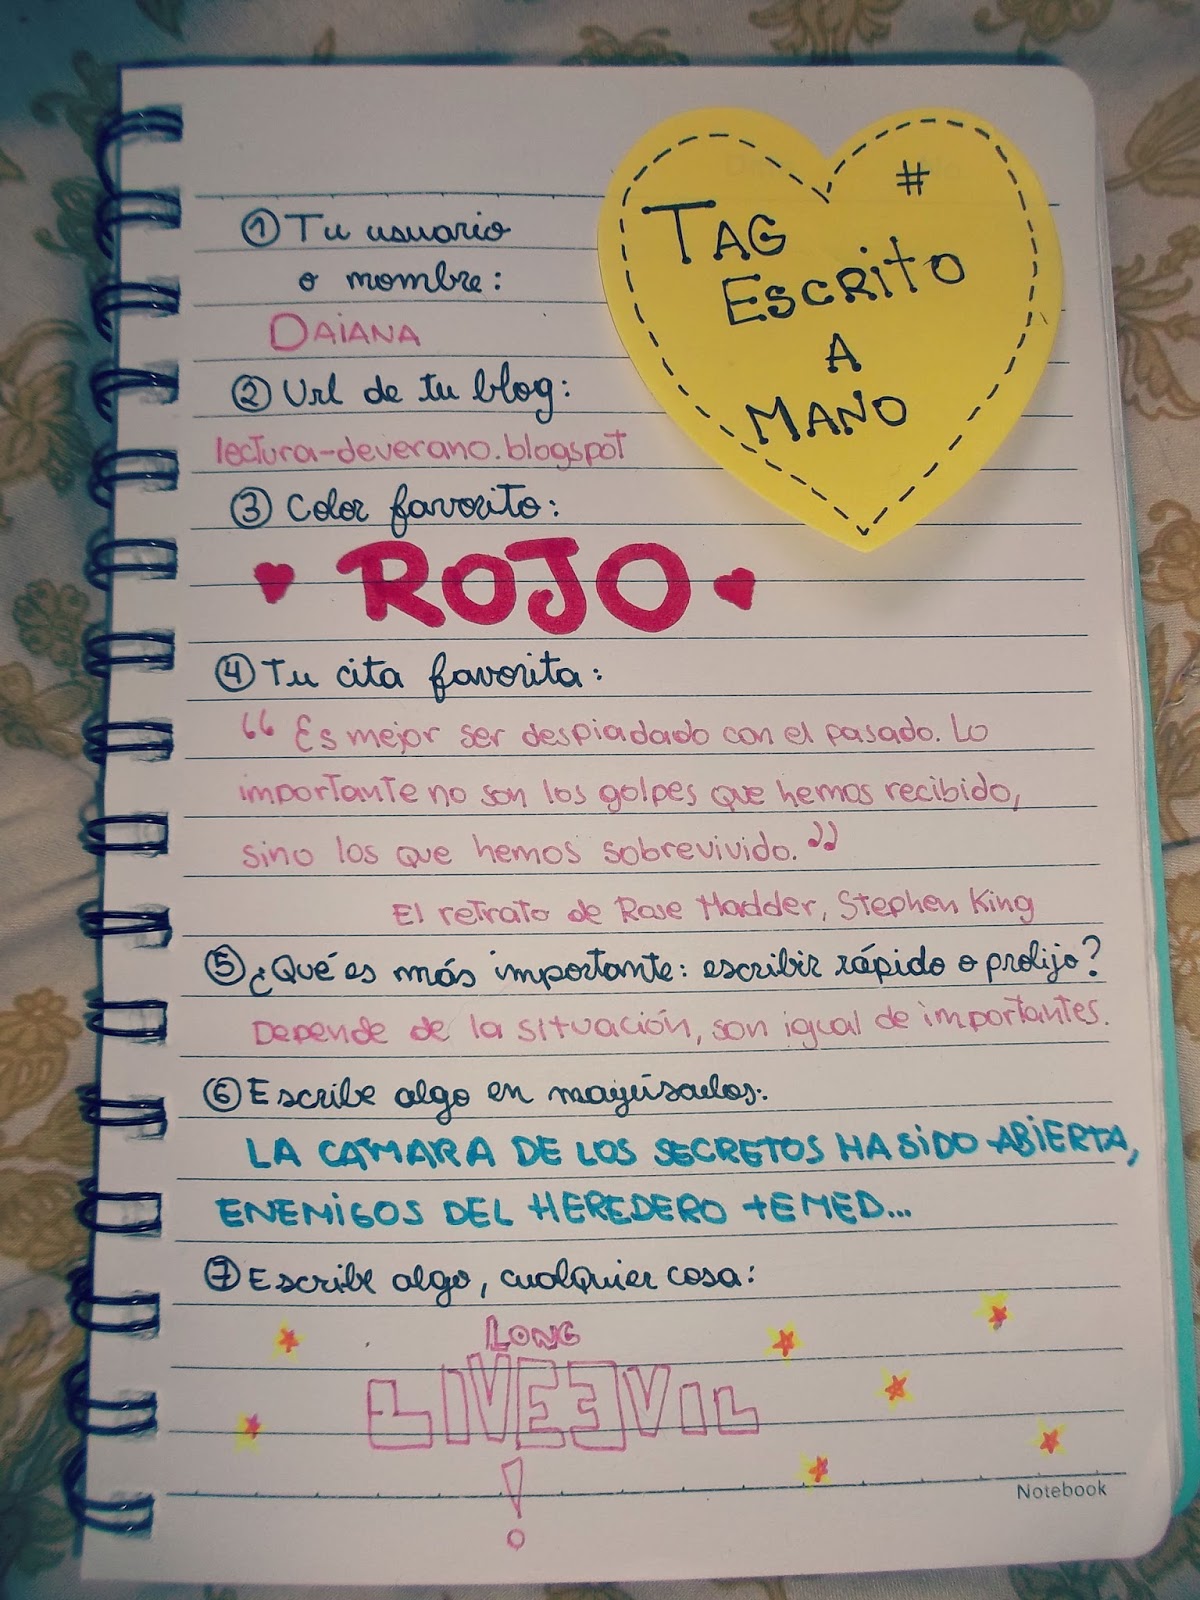 #
TAG
ESCRITO
A
MANO
① Tu usuario
o nombre:
DAIANA
② Url de tu blog:
lectura-deverano.blogspot
③ Color favorito:
ROJO
④ Tu cita favorita:
“ Es mejor ser despiadado con el pasado. Lo
importante no son los golpes que hemos recibido,
sino los que hemos sobrevivido.”
El retrato de Rose Madder, Stephen King
⑤ ¿Qué es más importante: escribir rápido o prolijo?
Depende de la situación, son igual de importantes.
⑥ Escribe algo en mayúsculas:
LA CÁMARA DE LOS SECRETOS HA SIDO ABIERTA,
ENEMIGOS DEL HEREDERO TEMED...
⑦ Escribe algo, cualquier cosa:
LONG
LIVE EVIL
!
Notebook